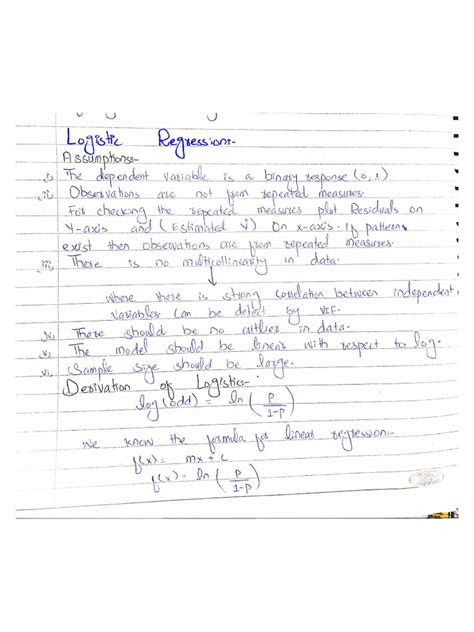 Logistic Regression:-
Assumptions:-
i) The dependent variable is a binary response (0, 1)
ii) Observations are not from repeated measures.
For checking the repeated measures plot Residuals on
Y-axis and (Estimated Ŷ) On x-axis. If patterns
exist then observations are from repeated measures.
iii) There is no multicollinearity in data.
↓
where there is strong correlation between independent
variables can be detect by VIF.
iv) There should be no outlier in data.
v) The model should be linear with respect to log.
vi) Sample Size should be large.
Derivation of Logistic:-
log(odd) = ln (P/1-P)
we know the formula for linear regression:-
f(x) = mx + c
f(x) = ln (P/1-P)